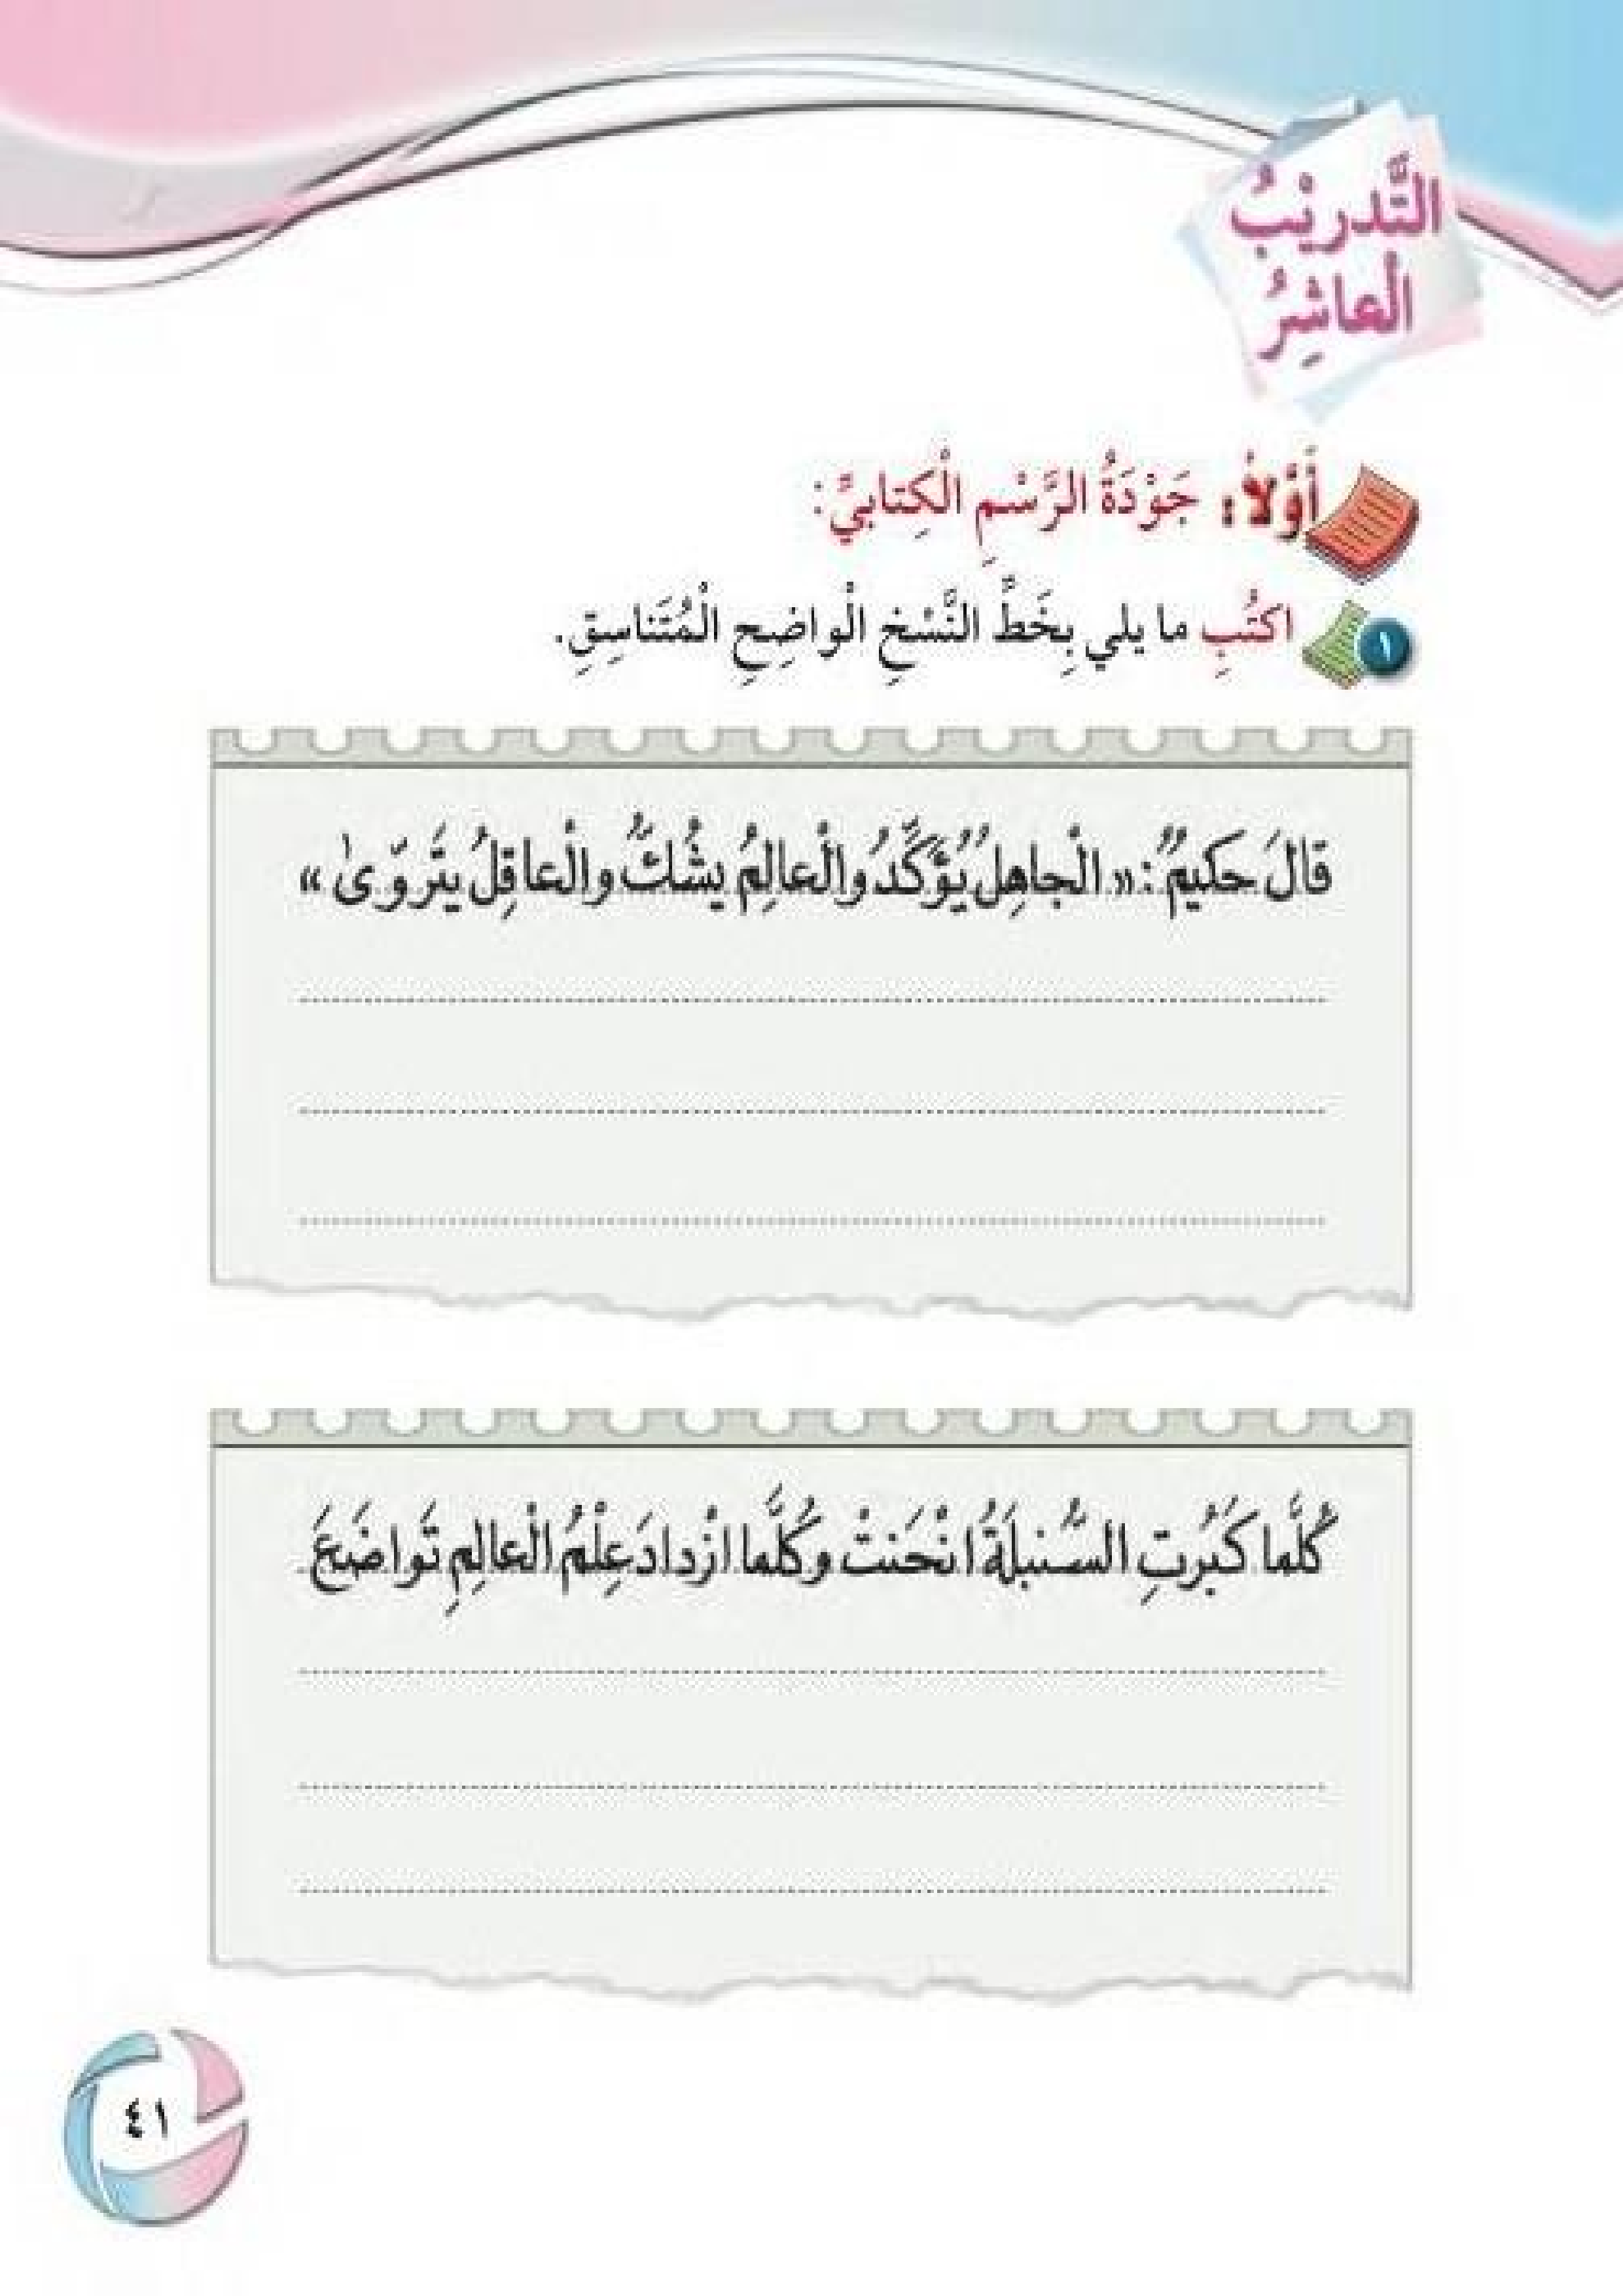 التَّدريْبُ
الْعاشِرُ
أَوَّلاً: جَوْدَةُ الرَّسْمِ الْكِتابيِّ:
١ اكتُبِ ما يلي بِخَطِّ النَّسْخِ الْواضِحِ الْمُتَناسِقِ.
قالَ حَكيمٌ: «الْجاهِلُ يُؤَكِّدُ والْعالِمُ يشُكُّ والْعاقِلُ يتَروّىٰ»
كُلَّما كَبُرتِ السُّنبلَةُ انْحَنتْ وكُلَّما ازْدادَ عِلْمُ الْعالِمِ تَواضَعَ
٤١